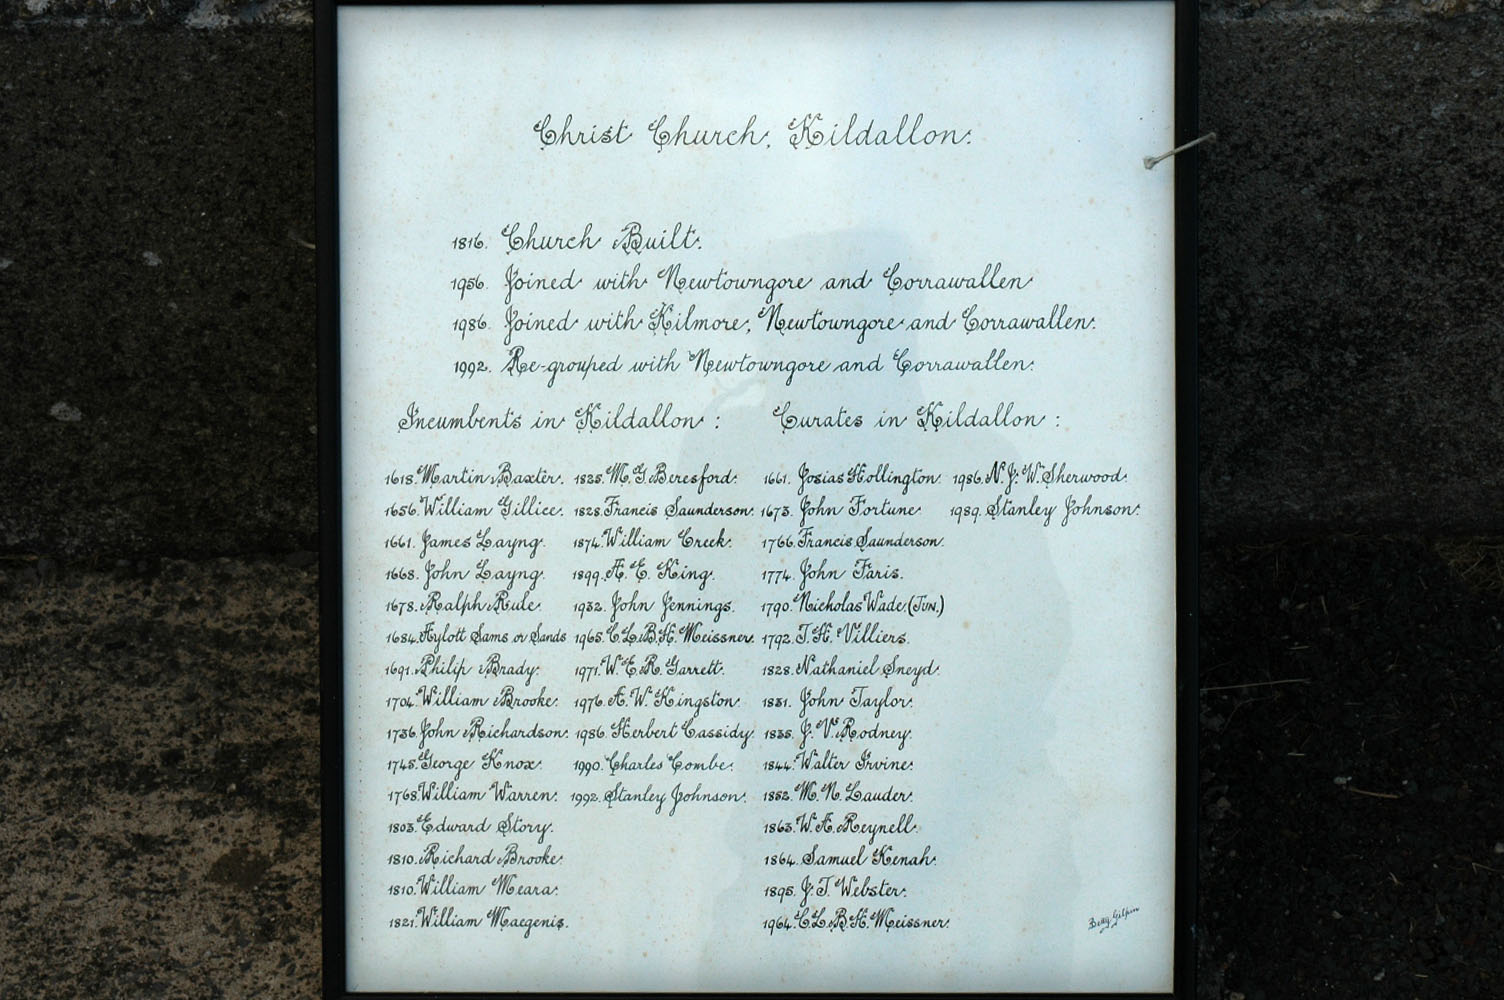 Christ Church, Kildallon.
1816. Church Built.
1956. Joined with Newtowngore and Corrawallen
1986. Joined with Kilmore, Newtowngore and Corrawallen.
1992. Re-grouped with Newtowngore and Corrawallen.
Incumbents in Kildallon :
1618. Martin Baxter.
1656. William Gillice.
1661. James Layng.
1668. John Layng.
1678. Ralph Rule.
1684. Aylott Sams or Sands
1691. Philip Brady.
1704. William Brooke.
1736. John Richardson.
1745. George Knox.
1768. William Warren.
1803. Edward Story.
1810. Richard Brooke.
1810. William Meara.
1821. William Maegenis.
1825. M. G. Beresford.
1828. Francis Saunderson.
1874. William Creek.
1899. A. E. King.
1932. John Jennings.
1965. C. L. B. H. Meissner.
1971. W. E. R. Garrett.
1976. A. W. Kingston.
1986. Herbert Cassidy.
1990. Charles Combe.
1992. Stanley Johnson.
Curates in Kildallon :
1661. Josias Hollington
1673. John Fortune.
1766. Francis Saunderson.
1774. John Faris.
1790. Nicholas Wade. (Jun.)
1792. T. H. Villiers.
1828. Nathaniel Sneyd.
1831. John Taylor.
1835. J. V. Rodney.
1844. Walter Irvine.
1852. M. N. Lauder.
1863. W. A. Reynell.
1864. Samuel Kenah.
1895. J. T. Webster.
1964. C. L. B. H. Meissner.
1986. N. J. W. Sherwood.
1989. Stanley Johnson.
Betty Gilpin